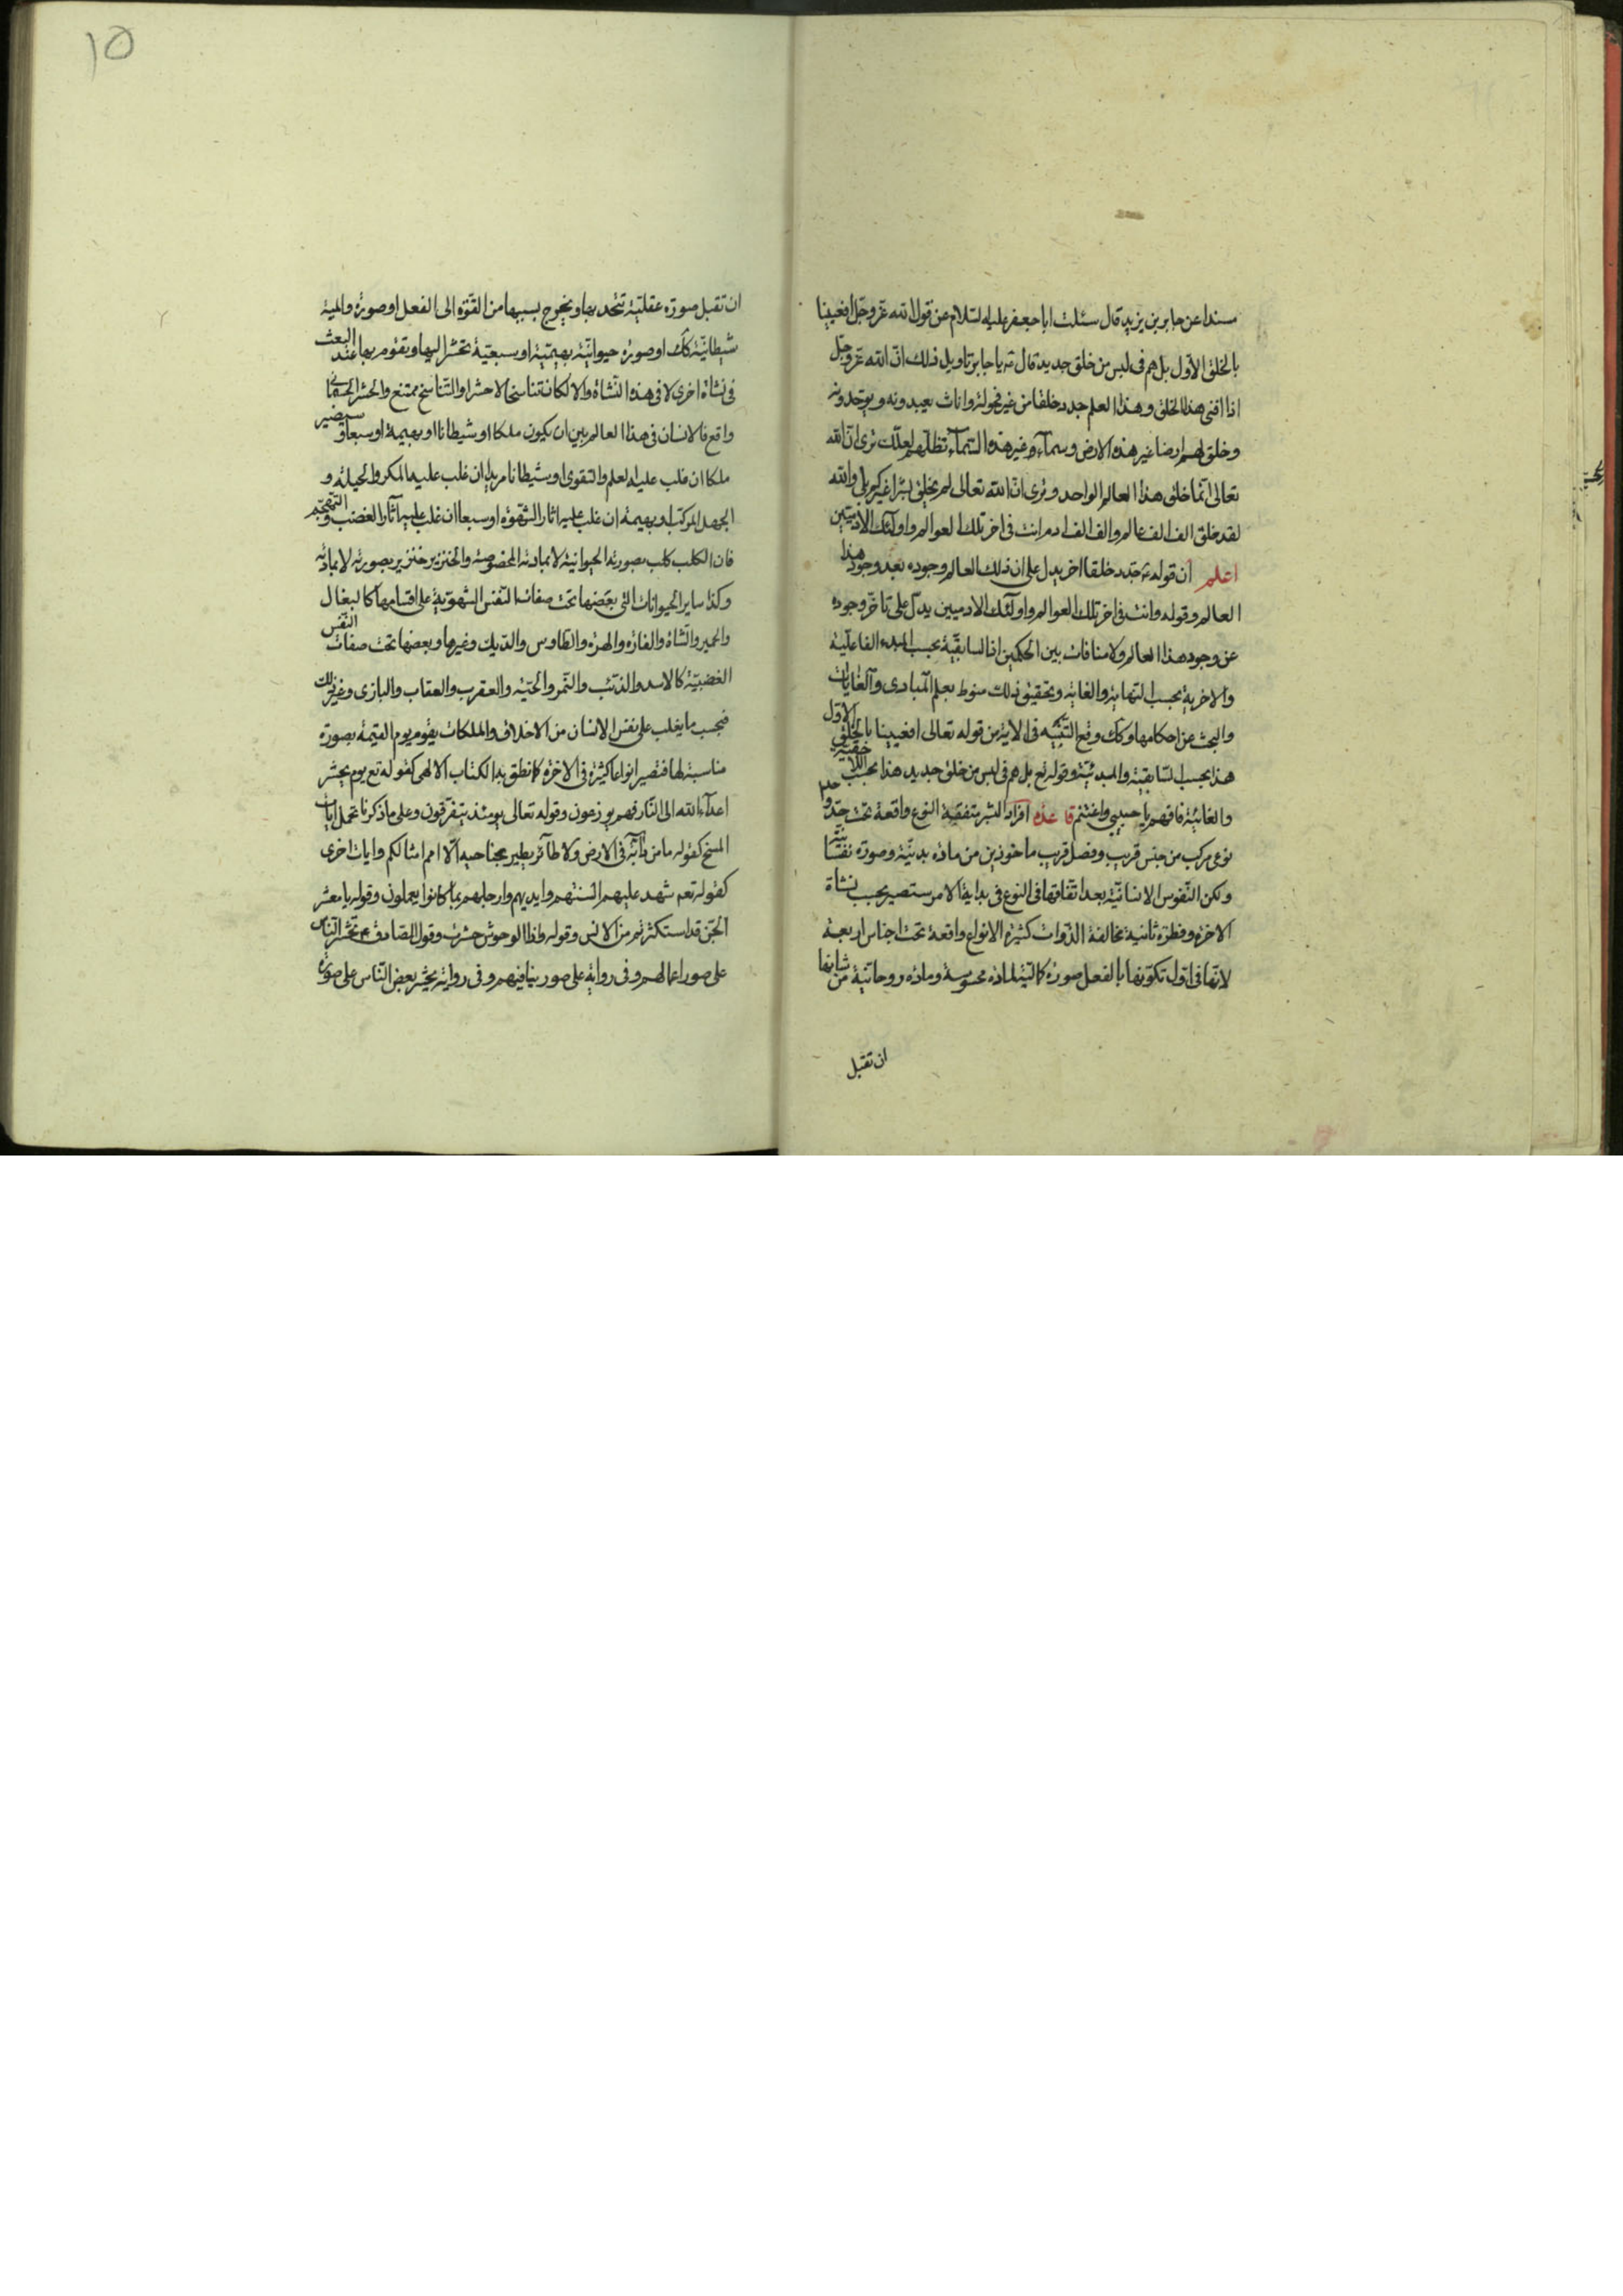 مسندا عن جابر بن يزيد قال سئلت ابا جعفر عليه السلام عن قول الله عز وجل افعيينا
بالخلق الاول بل هم فى لبس من خلق جديد قال يا جابر تاويل ذلك ان الله عز وجل
اذا افنى هذا الخلق وهذا العلم جدد خلقا من غير فحولة واناث يعبدونه ويوحدونه
وخلق لهم ارضا غير هذه الارض وسماء غير هذه السماء تظلهم لعلك ترى ان الله
تعالى انما خلق هذا العالم الواحد وترى ان الله تعالى لم يخلق بشرا غيركم بلى والله
لقد خلق الف الف عالم والف الف ادم انت فى اخر تلك العوالم واولئك الآدميين
اعلم ان قوله جدد خلقا اخر يدل على ان ذلك العالم وجوده بعد وجود هذا
العالم وقوله وانت فى اخر تلك العوالم واولئك الادميين يدل على تاخر وجوده
عن وجود هذا العالم ولا منافات بين الحكمين اذ السابقية بحسب المبدء الفاعلية
والاخرية بحسب النهاية والغاية وتحقيق ذلك منوط بعلم المبادى والغايات
والبحث عن احكامها وكك وقع التنبيه فى الاية من قوله تعالى افعيينا بالخلق الاول
هذا بحسب السابقية والمبدئية وقوله تع بل هم فى لبس من خلق جديد هذا بحسب اللاحقية
والغائية فافهم يا حبيبى واغتنم قاعدة افراد البشر متفقية النوع واقعة تحت حد واحد
نوعى مركب من جنس قريب وفصل قريب ماخوذين من مادة بدنية وصورة نفسانية
ولكن النفوس الانسانية بعد اتفاقها فى النوع فى بداية الامر ستصير بحسب نشاة
الاخرة وفطرة ثانية مخالفة الذوات كثيرة الانواع واقعة تحت اجناس اربعة
لانها فى اول تكونها بالفعل صورة كمالية لمادة محسوسة ومادة روحانية من شانها
ان تقبل
١٥
ان تقبل صورة عقلية تتحد بها ويخرج بسببها من القوة الى الفعل او صورة والمية
شيطانية كك او صورة حيوانية بهيمية او سبعية تحشر اليها وتقوم بها عند البعث
فى نشاة اخرى لا فى هذه النشاة والا لكان تناسخا لا حشرا والتناسخ ممتنع والحشر الجسمانى
واقع فالانسان فى هذا العالم بين ان يكون ملكا او شيطانا او بهيمة او سبعا وسيصير
ملكا ان غلب عليه العلم والتقوى او شيطانا مريدا ان غلب عليه المكر والحيلة و
الجهل المركب او بهيمة ان غلب عليه اثار الشهوة او سبعا ان غلب عليه آثار الغضب والتهجم
فان الكلب كلب بصورته الحيوانية لا بمادته المخصوصة والخنزير خنزير بصورته لا بمادته
وكذا ساير الحيوانات التى بعضها تحت صفات النفس الشهوية على اقسامها كالبغال
والحمير والشاة والفارة والهرة والطاوس والديك وغيرها وبعضها تحت صفات النفس
الغضبية كالاسد والذئب والنمر والحية والعقرب والعقاب والبازى وغير ذلك
فبحسب ما يغلب على نفس الانسان من الاخلاق والملكات يقوم يوم القيمة بصورة
مناسبة لها فتصير انواعا كثيرة فى الاخرة كما نطق به الكتاب الالهى كقوله تع يوم يحشر
اعداء الله الى النار فهم يوزعون وقوله تعالى يومئذ يتفرقون وعلى ما ذكرنا تحمل ايات
المسخ كقوله ما من دابة فى الارض ولا طائر يطير بجناحيه الا امم امثالكم وايات اخرى
كقوله تعم شهد عليهم السنتهم وايديهم وارجلهم بما كانوا يعملون وقوله يا معشر
الجن قد استكثرتم من الانس وقوله واذا الوحوش حشرت وقول الصادق ع تحشر الناس
على صور اعمالهم وفى رواية على صور نياتهم وفى رواية يحشر بعض الناس على صورة